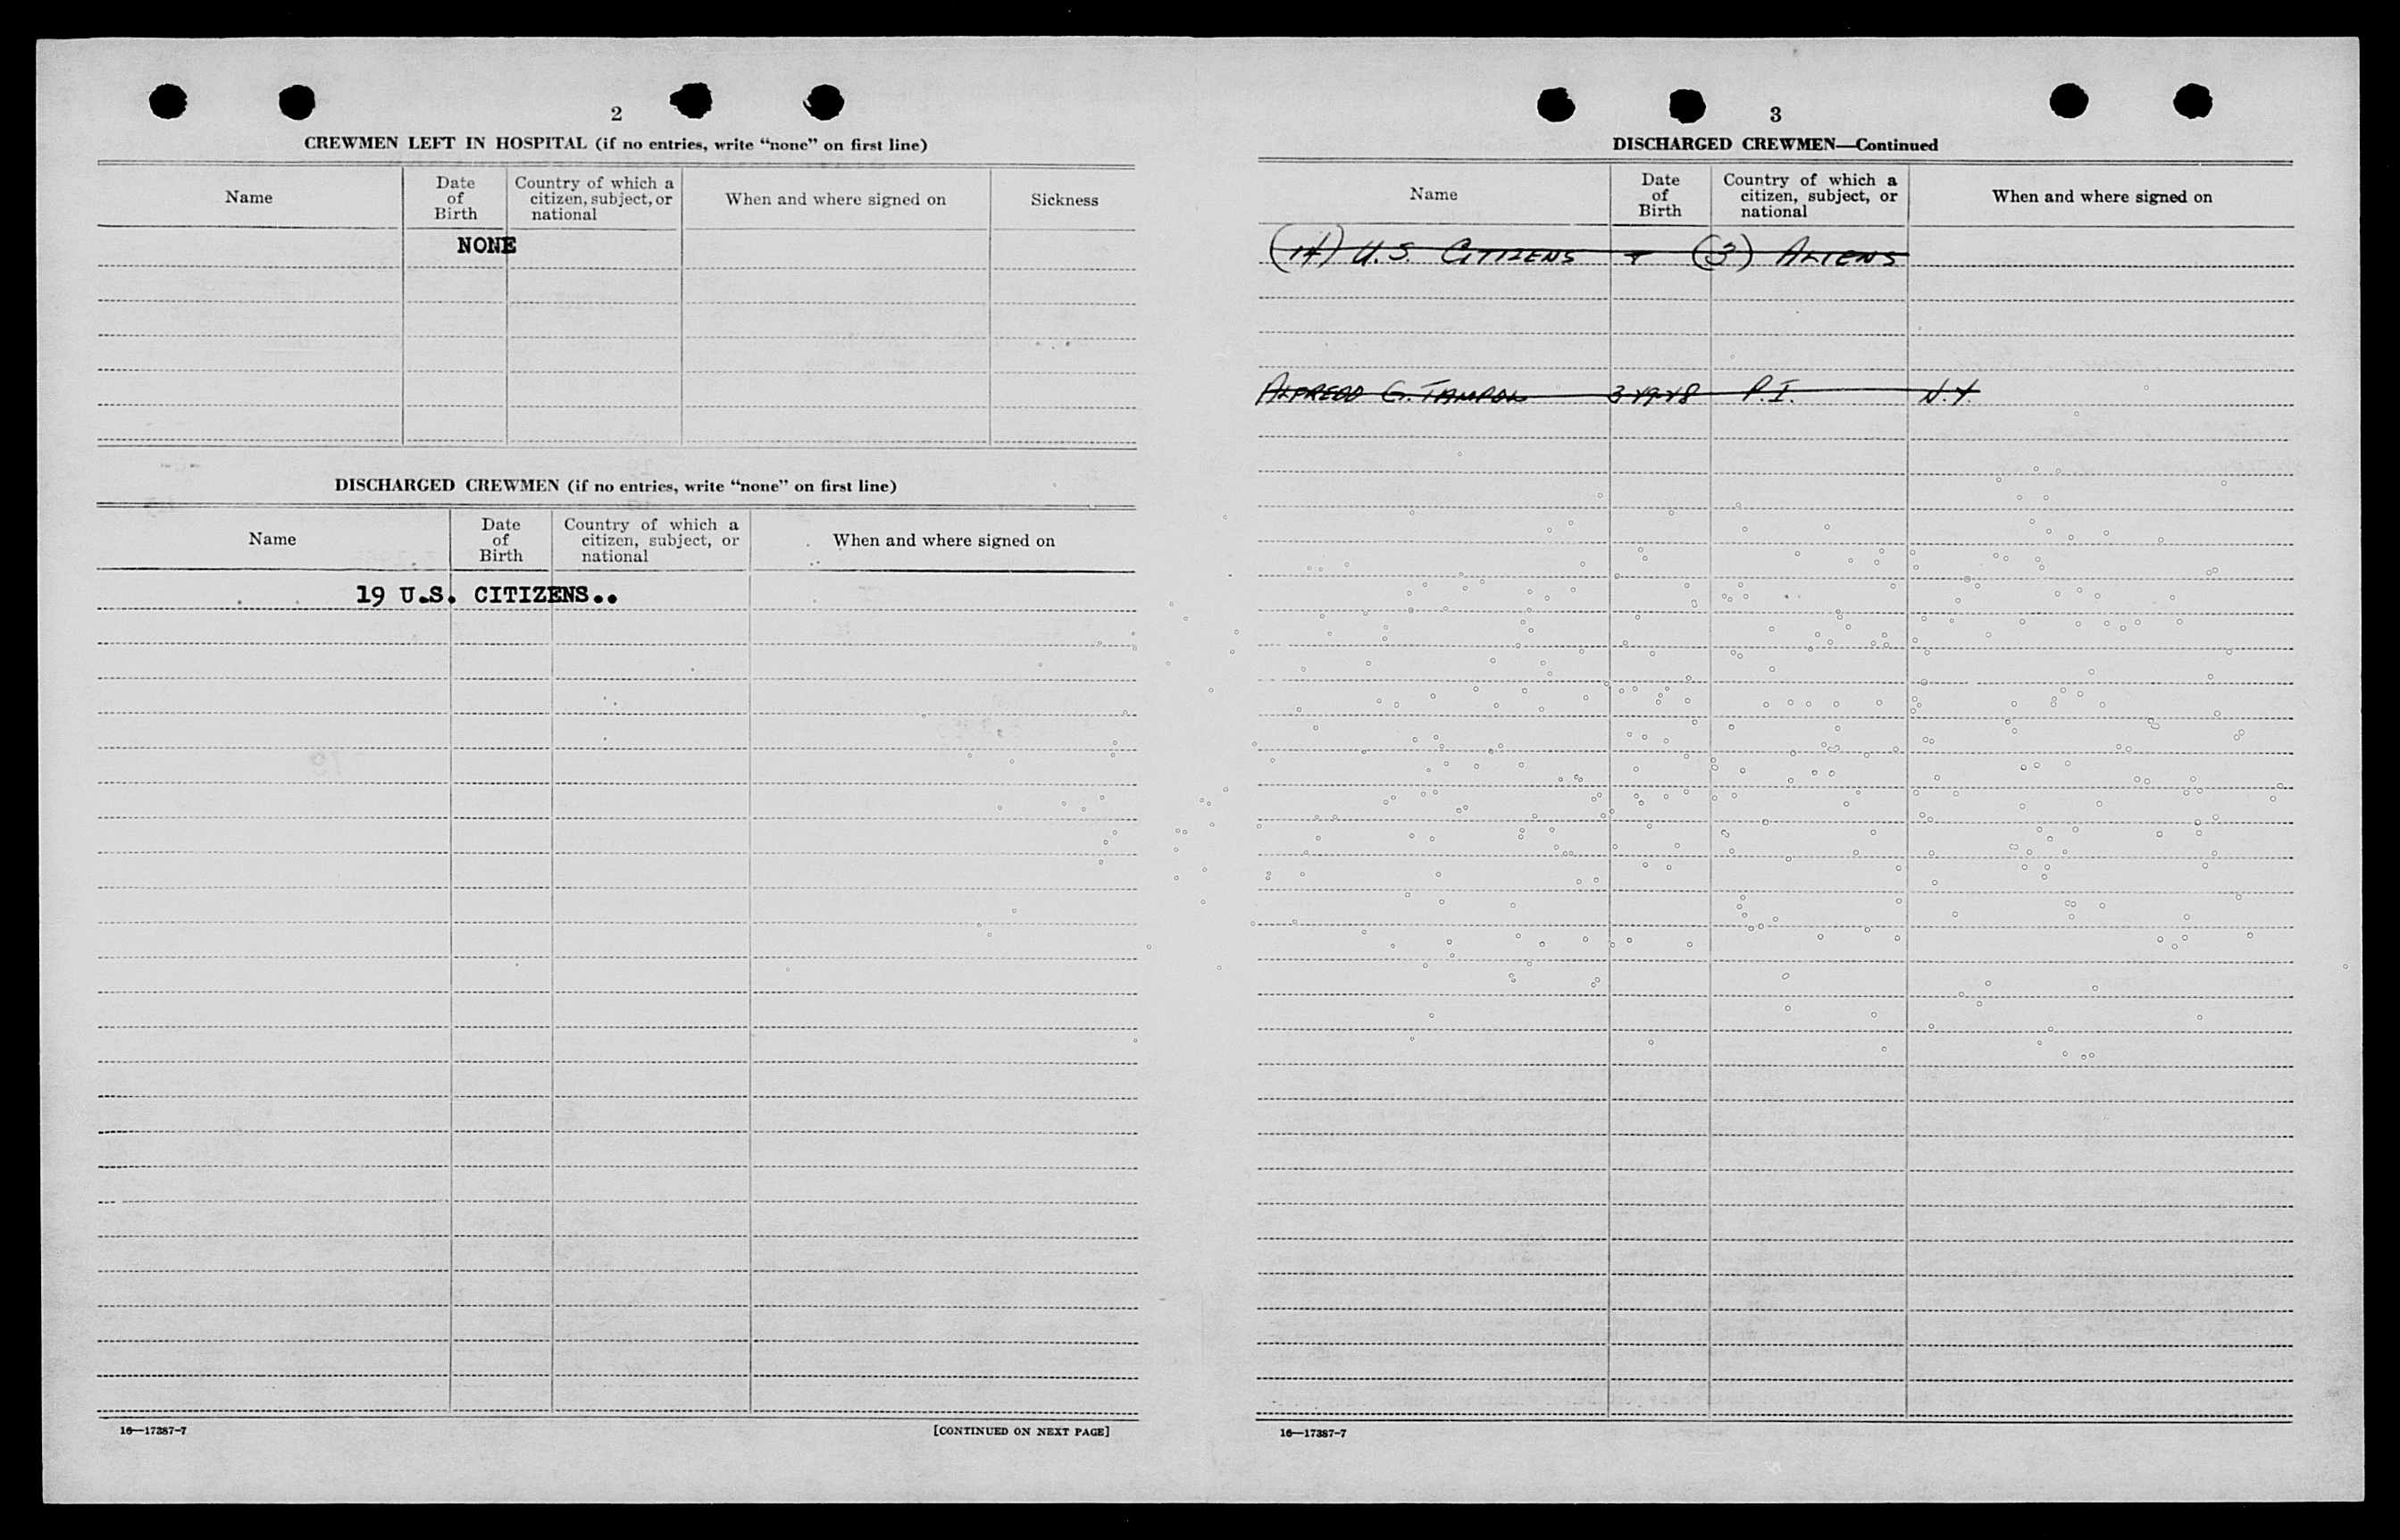 2
CREWMEN LEFT IN HOSPITAL (if no entries, write “none” on first line)
Name
Date of Birth
Country of which a citizen, subject, or national
When and where signed on
Sickness
NONE
DISCHARGED CREWMEN (if no entries, write “none” on first line)
Name
Date of Birth
Country of which a citizen, subject, or national
When and where signed on
19 U.S. CITIZENS..
16—17387-7
[CONTINUED ON NEXT PAGE]
3
DISCHARGED CREWMEN—Continued
Name
Date of Birth
Country of which a citizen, subject, or national
When and where signed on
(14) U.S. CITIZENS + (3) ALIENS
ALFREDO G. P.I. N.Y.
16—17387-7